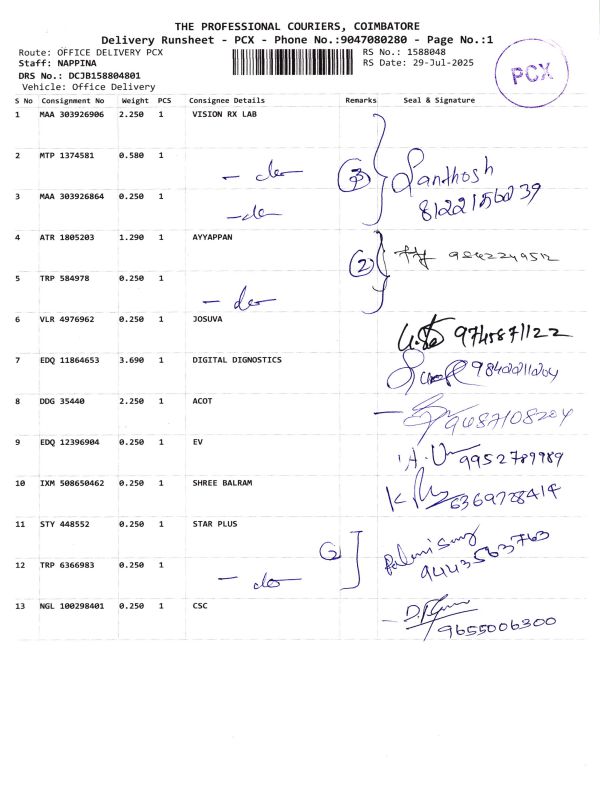 THE PROFESSIONAL COURIERS, COIMBATORE
Delivery Runsheet - PCX - Phone No.:9047080280 - Page No.:1
Route: OFFICE DELIVERY PCX RS No.: 1588048
Staff: NAPPINA RS Date: 29-Jul-2025
DRS No.: DCJB158804801
Vehicle: Office Delivery
PCX
S No Consignment No Weight PCS Consignee Details Remarks Seal & Signature
1 MAA 303926906 2.250 1 VISION RX LAB
2 MTP 1374581 0.580 1 - do - 3 Santhosh
3 MAA 303926864 0.250 1 - do - 8122156239
4 ATR 1805203 1.290 1 AYYAPPAN 2 9842249512
5 TRP 584978 0.250 1 - do -
6 VLR 4976962 0.250 1 JOSUVA 9745871122
7 EDQ 11864653 3.690 1 DIGITAL DIGNOSTICS
8 DDG 35440 2.250 1 ACOT 9487108204
9 EDQ 12396904 0.250 1 EV 9952789989
10 IXM 508650462 0.250 1 SHREE BALRAM 6369728414
11 STY 448552 0.250 1 STAR PLUS
12 TRP 6366983 0.250 1 - do - 9443563763
13 NGL 100298401 0.250 1 CSC 9655006300